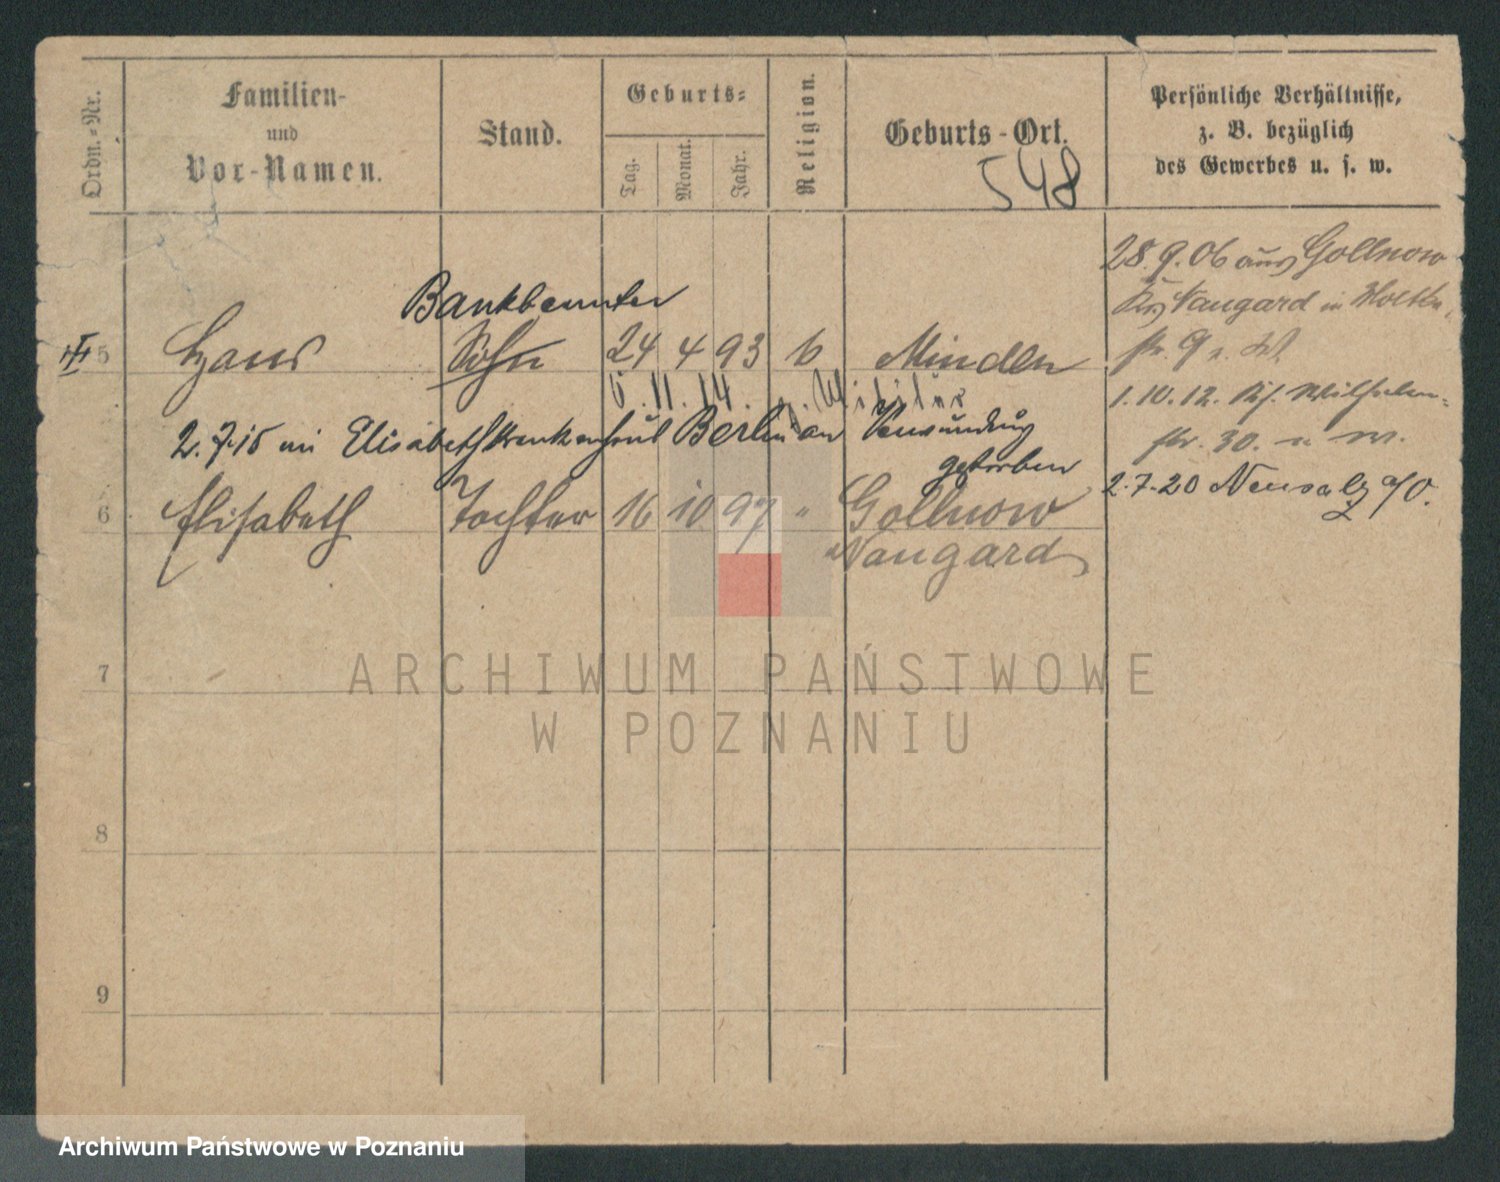 Ordn.-Nr.
Familien-
und
Vor-Namen.
Stand.
Geburts-
Tag.
Monat.
Jahr.
Religion.
Geburts-Ort.
548
Persönliche Verhältnisse,
z. B. bezüglich
des Gewerbes u. s. w.
Bankbeamter
5 Hans Sohn 24 4 93 6 Minden
6.11.14. z. Militär
2.7.15 im Elisabethkrankenhaus Berlin an Verwundung
gestorben
6 Elisabeth Tochter 16 10 97 " Gollnow
Naugard
7
8
9
28.9.06 aus Gollnow
Krs Naugard in Moltke
str. 9
1.10.12. Wilhelm-
str. 30.
2.7.20 Neusalz a/O.
ARCHIWUM PAŃSTWOWE
W POZNANIU
Archiwum Państwowe w Poznaniu